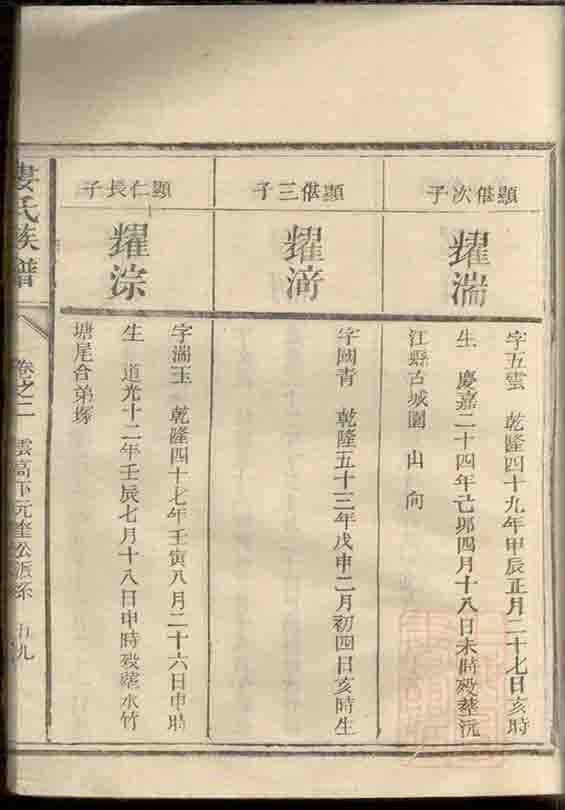 顯偡次子
耀湍
字五雲　乾隆四十九年甲辰正月二十七日亥時
生　慶嘉二十四年己卯四月十八日未時歿葬沅
江縣古城園　山　向
顯偡三子
耀渧
字國青　乾隆五十三年戊申二月初四日亥時生
顯仁長子
耀淙
字湍玉　乾隆四十七年壬寅八月二十六日申時
生　道光十二年壬辰七月十八日申時歿葬水竹
塘尾合弟塚
婁氏族譜
卷之二　雲高下元奎公派系　五九